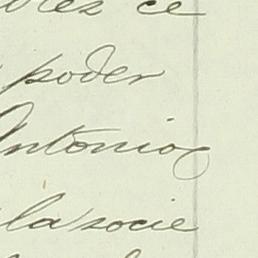 ce
poder
Antonio
la socie